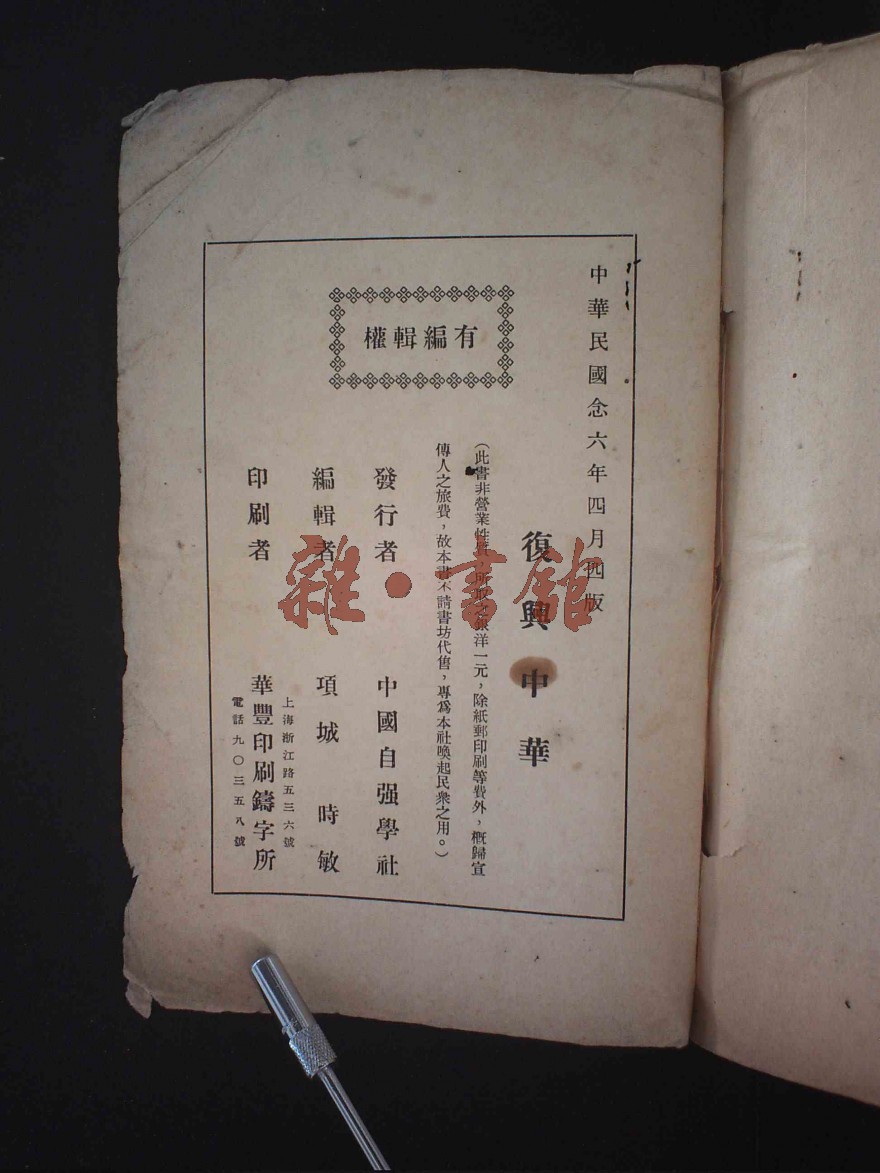 中華民國念六年四月四版
復興中華
（此書非營業性質，所取之銀洋一元，除紙郵印刷等費外，概歸宣
傳人之旅費，故本書不請書坊代售，專爲本社喚起民衆之用。）
有編輯權
發行者 中國自强學社
編輯者 項城 時敏
印刷者 華豐印刷鑄字所
上海浙江路五三六號
電話九〇三五八號
雜·書館